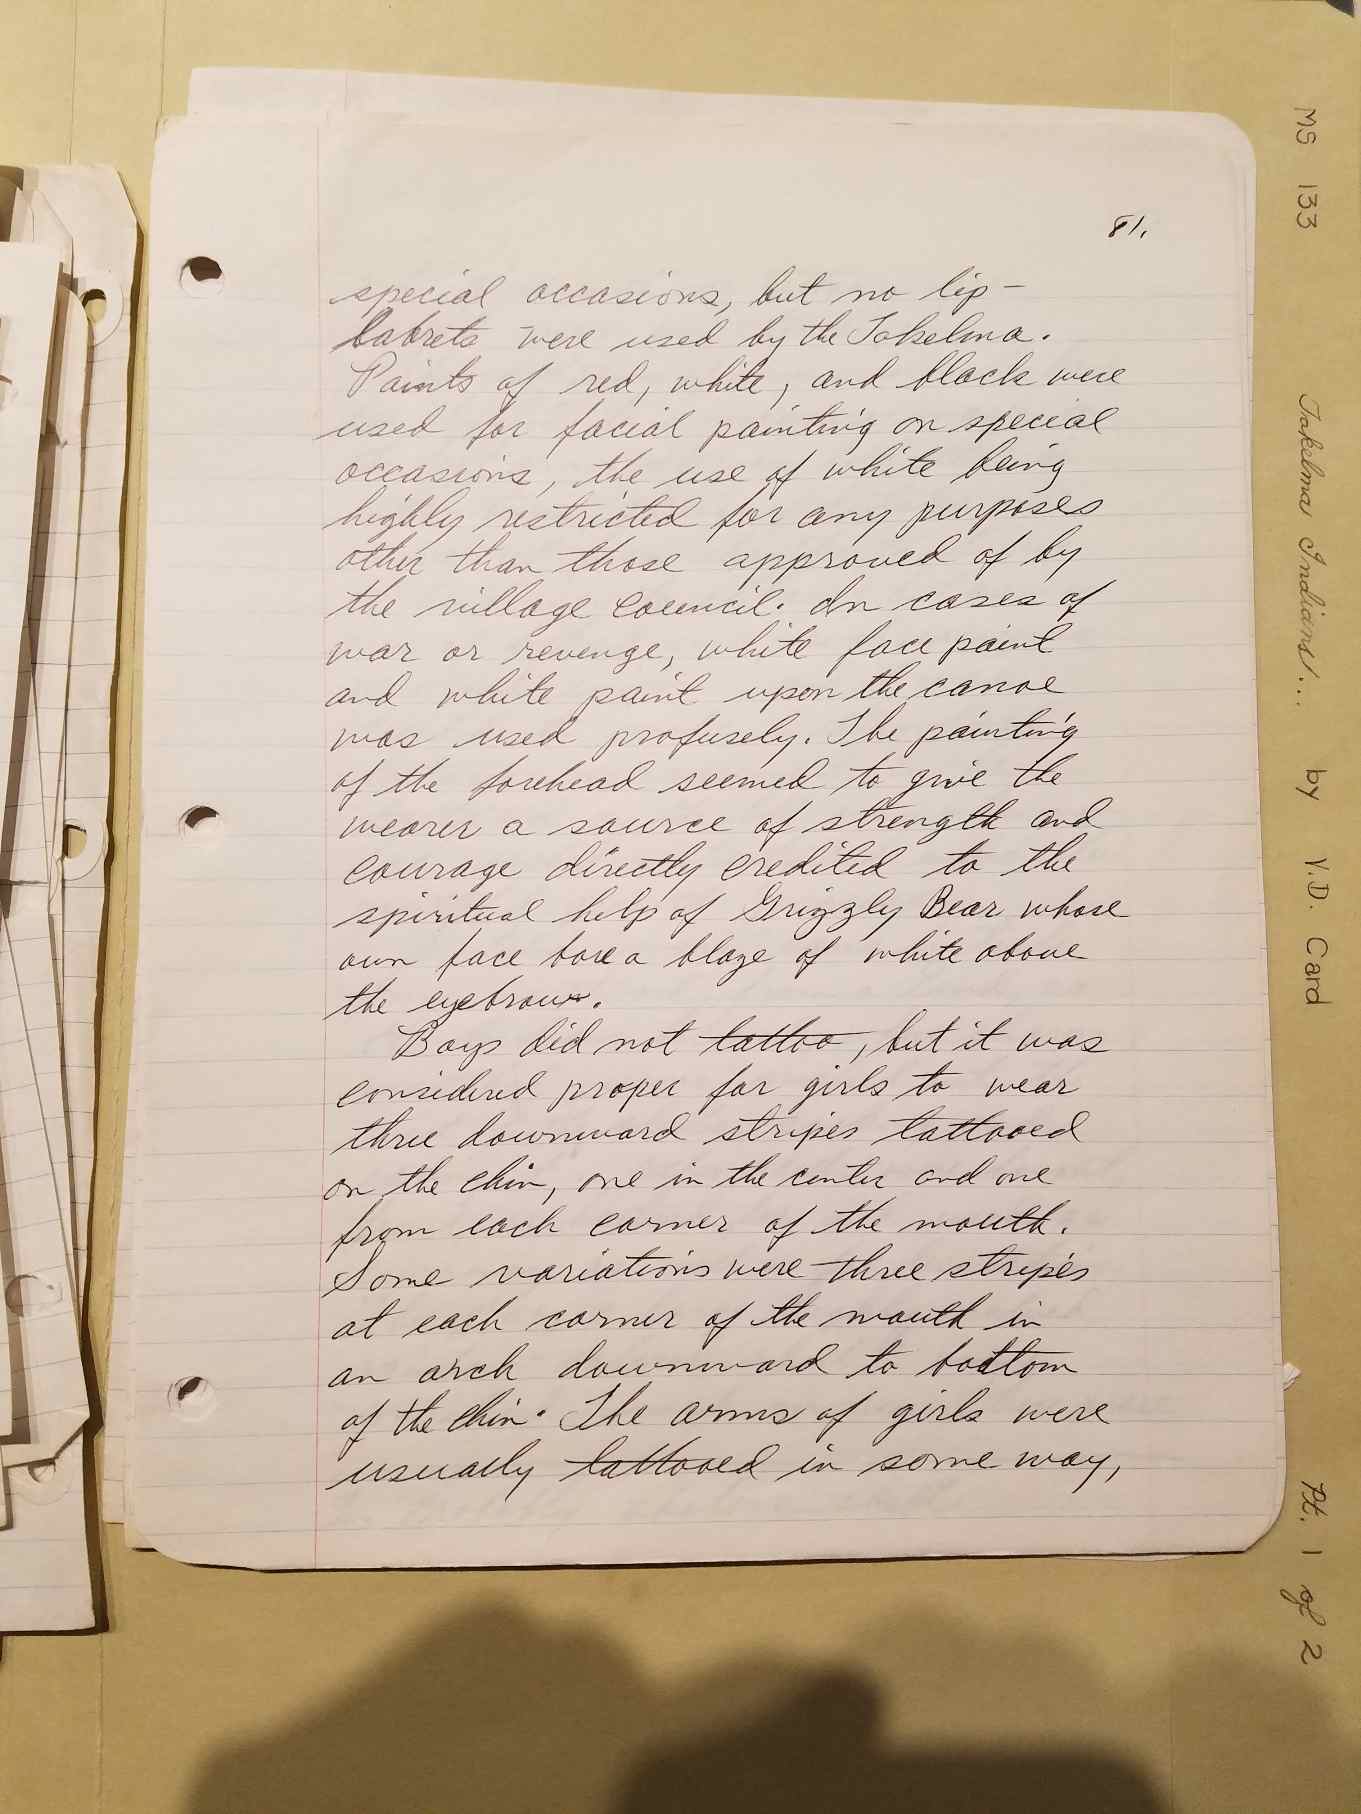 81.
special occasions, but no lip-
labrets were used by the Takelma.
Paints of red, white, and black were
used for facial painting on special
occasions, the use of white being
highly restricted for any purposes
other than those approved of by
the village council. In cases of
war or revenge, white face paint
and white paint upon the canoe
was used profusely. The painting
of the forehead seemed to give the
wearer a source of strength and
courage directly credited to the
spiritual help of Grizzly Bear whose
own face bore a blaze of white above
the eyebrows.
Boys did not tattoo, but it was
considered proper for girls to wear
three downward stripes tattooed
on the chin, one in the center and one
from each corner of the mouth.
Some variations were three stripes
at each corner of the mouth in
an arch downward to bottom
of the chin. The arms of girls were
usually tattooed in some way,
MS 133 Takelma Indians... by V.D. Card Pt. 1 of 2